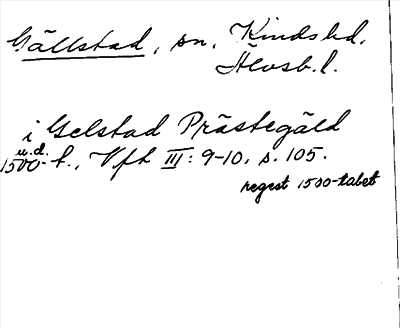 Gällstad, sn, Kinds hd,
Älvsb. l.
i Gelstad Prästegäld
u.d.
1500-t., Vft III: 9-10, s. 105.
regest 1500-talet